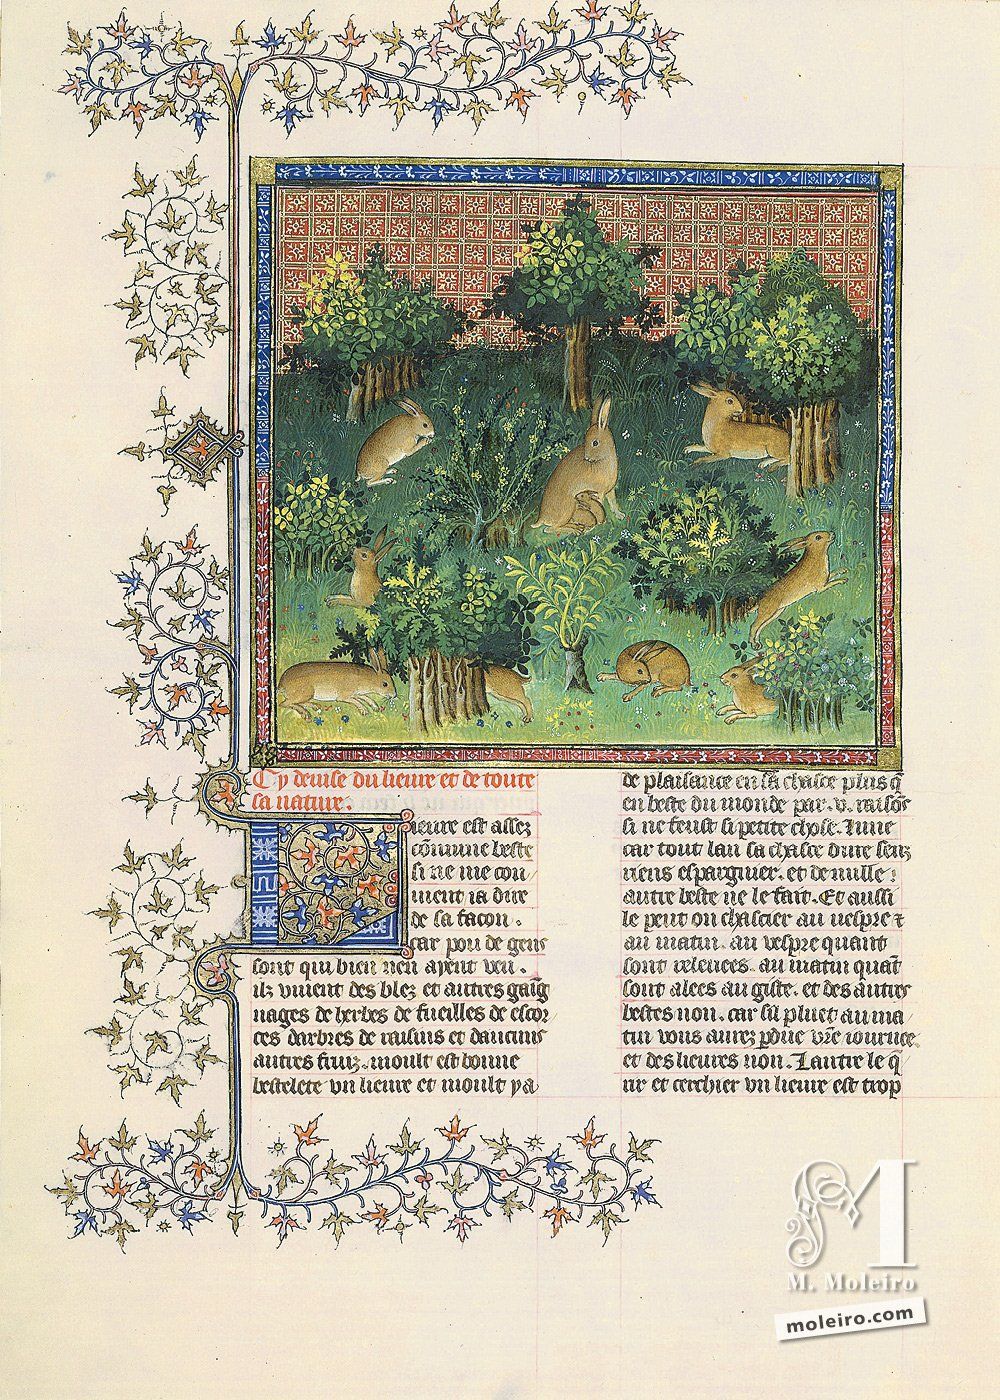 Cy deuise du lieure et de toute
sa nature.
Lieure est assez
cōmune beste
si ne me con
uient ia dire
de sa facon.
car pou de gens
sont qui bien nen ayent veu.
ilz viuent des blez et autres gaig
nages de herbes de fueilles de escor
ces darbres de raisins et daucuns
autres fruiz. moult est bonne
bestelete vn lieure et moult ya
de plaisance en sa chasce plus q̄
en beste du monde par .v. raisōs
si ne feust si petite chose. Lune
car tout lan sa chasce dure senz
riens espargnier. et de nulle
autre beste ne le fait. Et aussi
le peut on chascier au vespre et
au matin. au vespre quant
sont releuees. au matin quāt
sont alees au giste. et des autres
bestes non. car sil pluet au ma
tin vous aurez pdue vr̄e iournee
et des lieures non. Lautre le q̄
rir et cerchier vn lieure est trop
M
M. Moleiro
moleiro.com